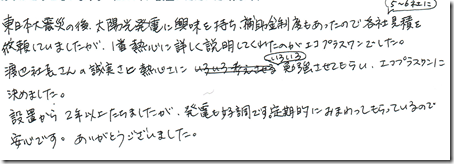 5~6社に
東日本大震災の後、太陽光発電に興味を持ち、補助金制度もあったので各社見積を
依頼していましたが、1番熱心に詳しく説明してくれたのがエコプラスワンでした。
渡辺社長さんの誠実さと熱心さに いろいろ 勉強させてもらい、エコプラスワンに
決めました。
設置から2年以上たちましたが、発電も好調です定期的にまわってもらっているので
安心です。ありがとうございました。